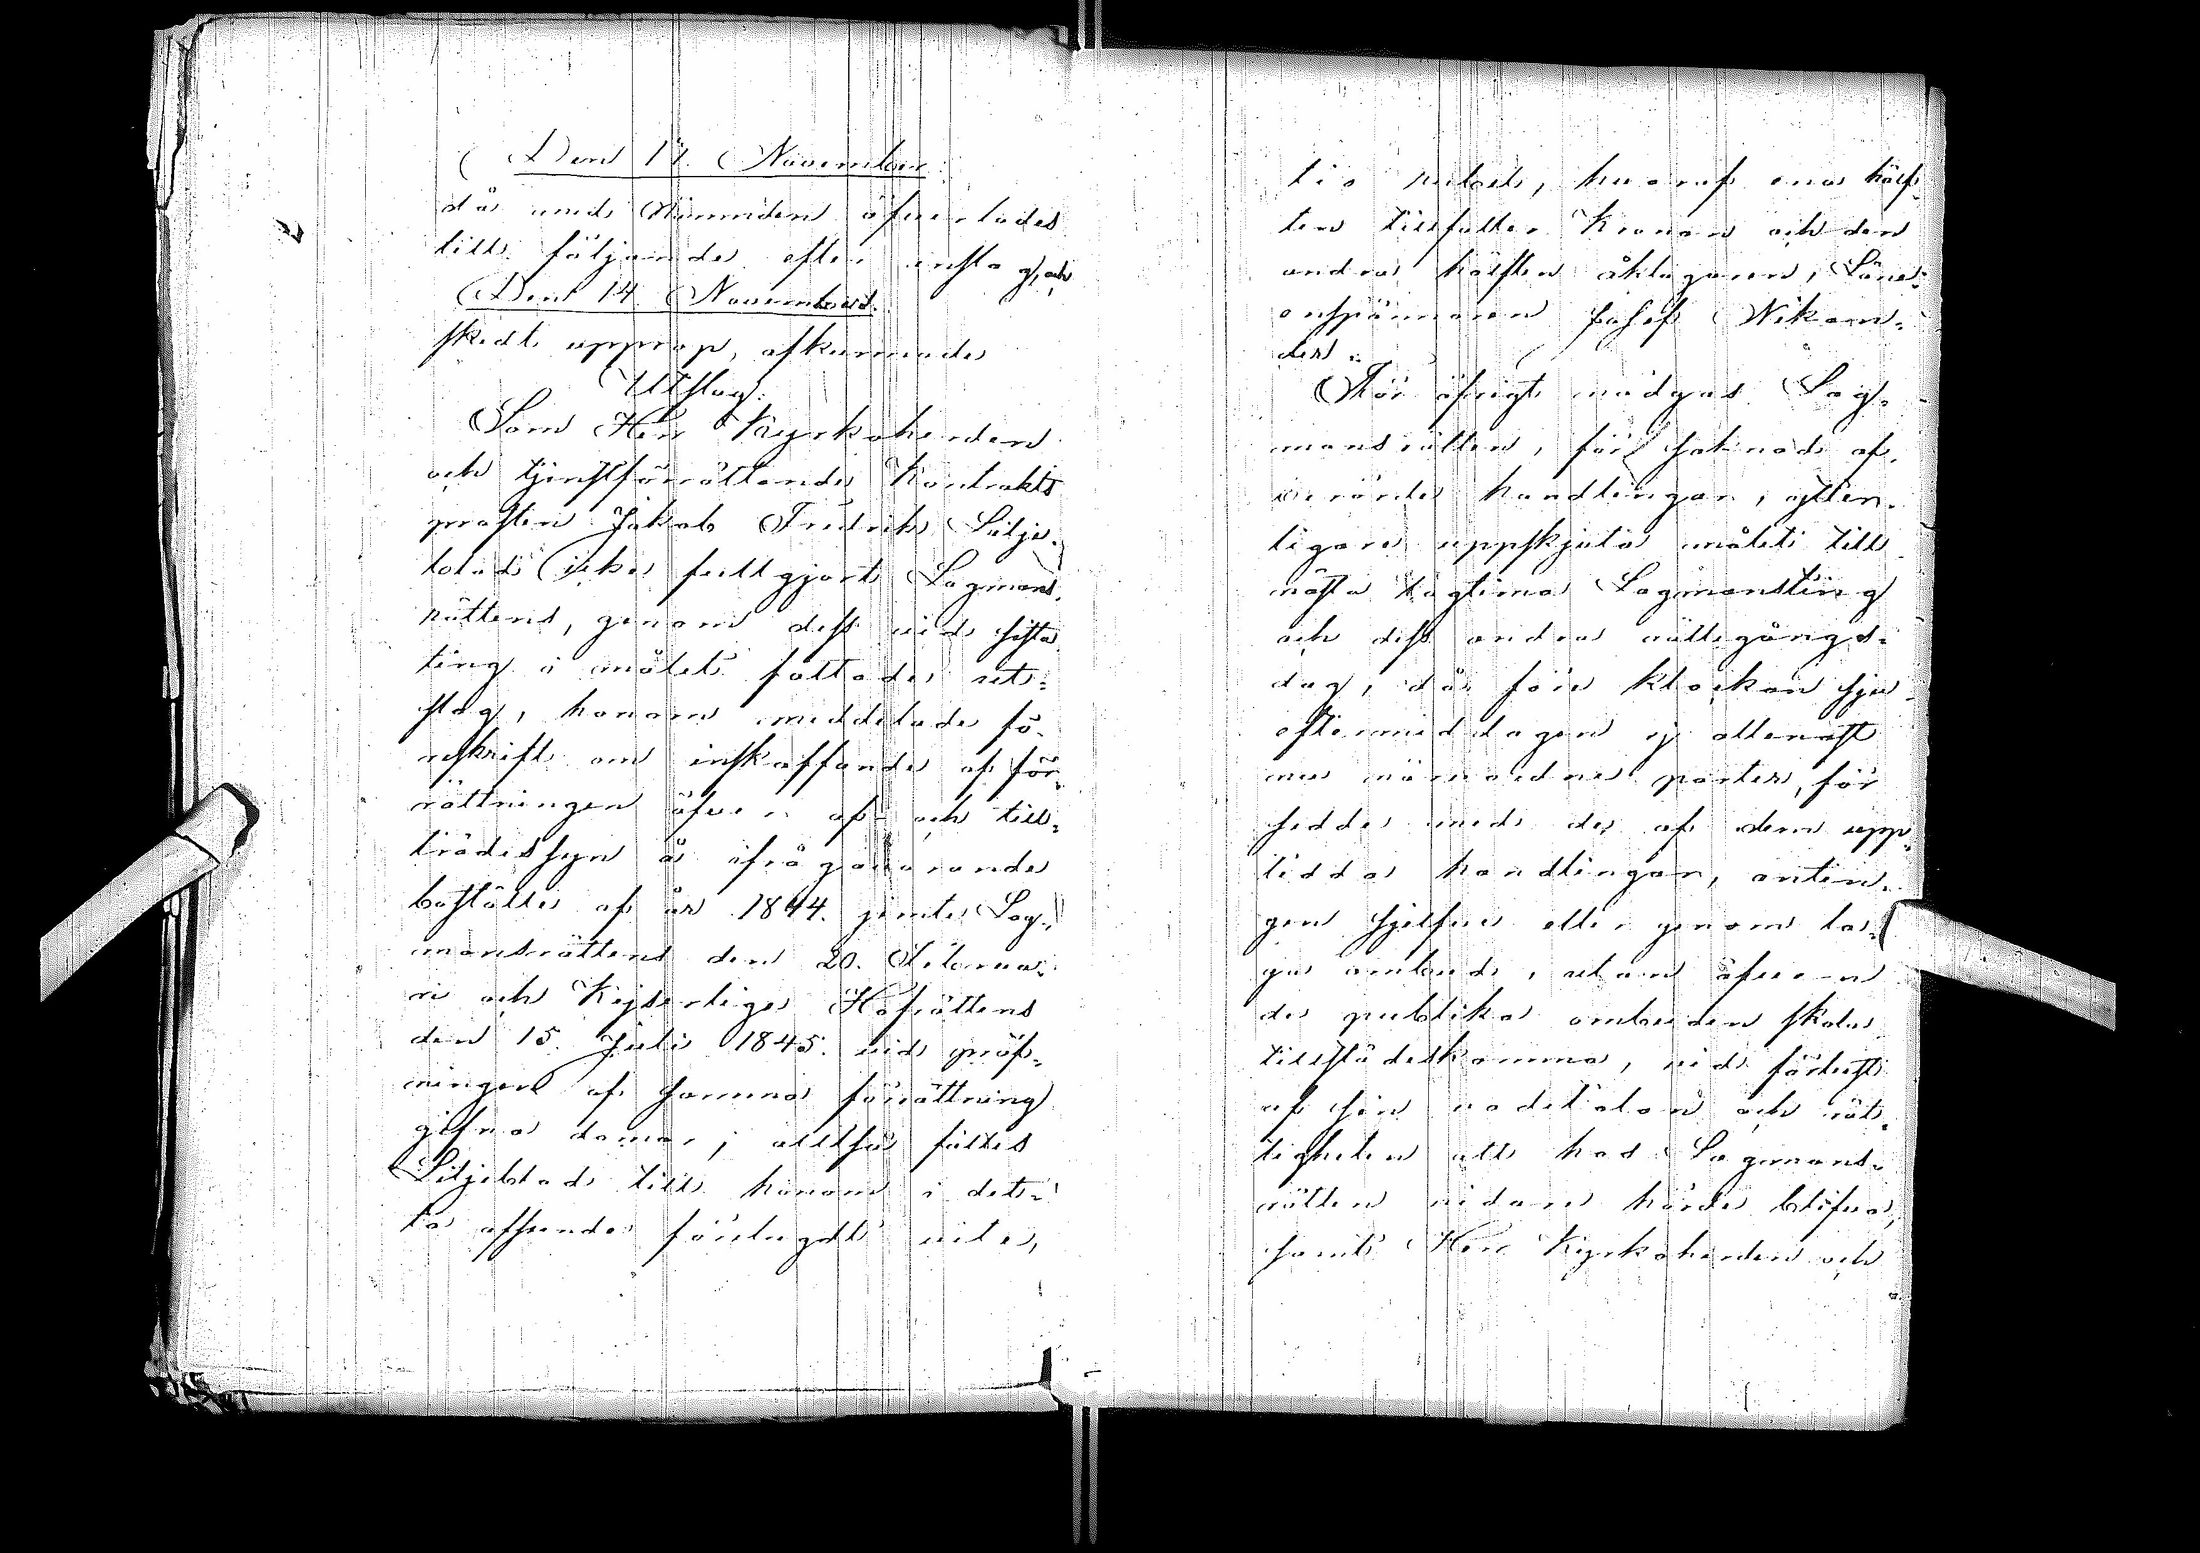 Den 12. November.
då med Nämnden öfverlades
till följande efter intagg, och
Den 14. November.
skedt upprop, afkunnades
Utslag:
Som Herr Kyrkoherden
och tjenstförrättande Kontrakts
prosten Jakob Fredrik Lilje-
blad icke fullgjort Lagmans
rättens, genom dess vid sista
ting i målet fattade ut-
slag, honom meddelade fö-
reskrift om inskaffande af för-
rättningen öfver af- och till-
trädessyn å ifrågavarande
boställe af år 1844. jemte Lag-
mansrättens den 20. Februa-
ri och Kejserliga Hofrättens
den 15. Juli 1845. vid pröf-
ningen af samma förrättning
gifna domar; alltså fälles
Liljeblad till honom i det-
ta afseende förelagdt vite,
tio rubel, hvaraf ena hälf-
ten tillfaller Kronan och den
andra hälften åklagaren, Läns-
onspännaren Josef Nikan-
der.
För öfrigt nödgas Lag-
mansrätten, för saknad af
berörde handlingar, ytter-
ligare uppskjuta målet till
nästa lagtima Lagmansting
och dess andra rättegångs-
dag, då före klockan sju
eftermiddagen ej allenast
nu närvardne parter, för
sedde med de af dem upp-
tedda handlingar, antin-
gen sjelfve eller genom la-
ga ombud, utan äfven
de publika ombuden skola
tillstädeskomma, vid förlust
af sin vadetalan och rät-
tigheten att hos Lagmans-
rätten vidare hörde blifva,
samt Herr Kyrkoherden och